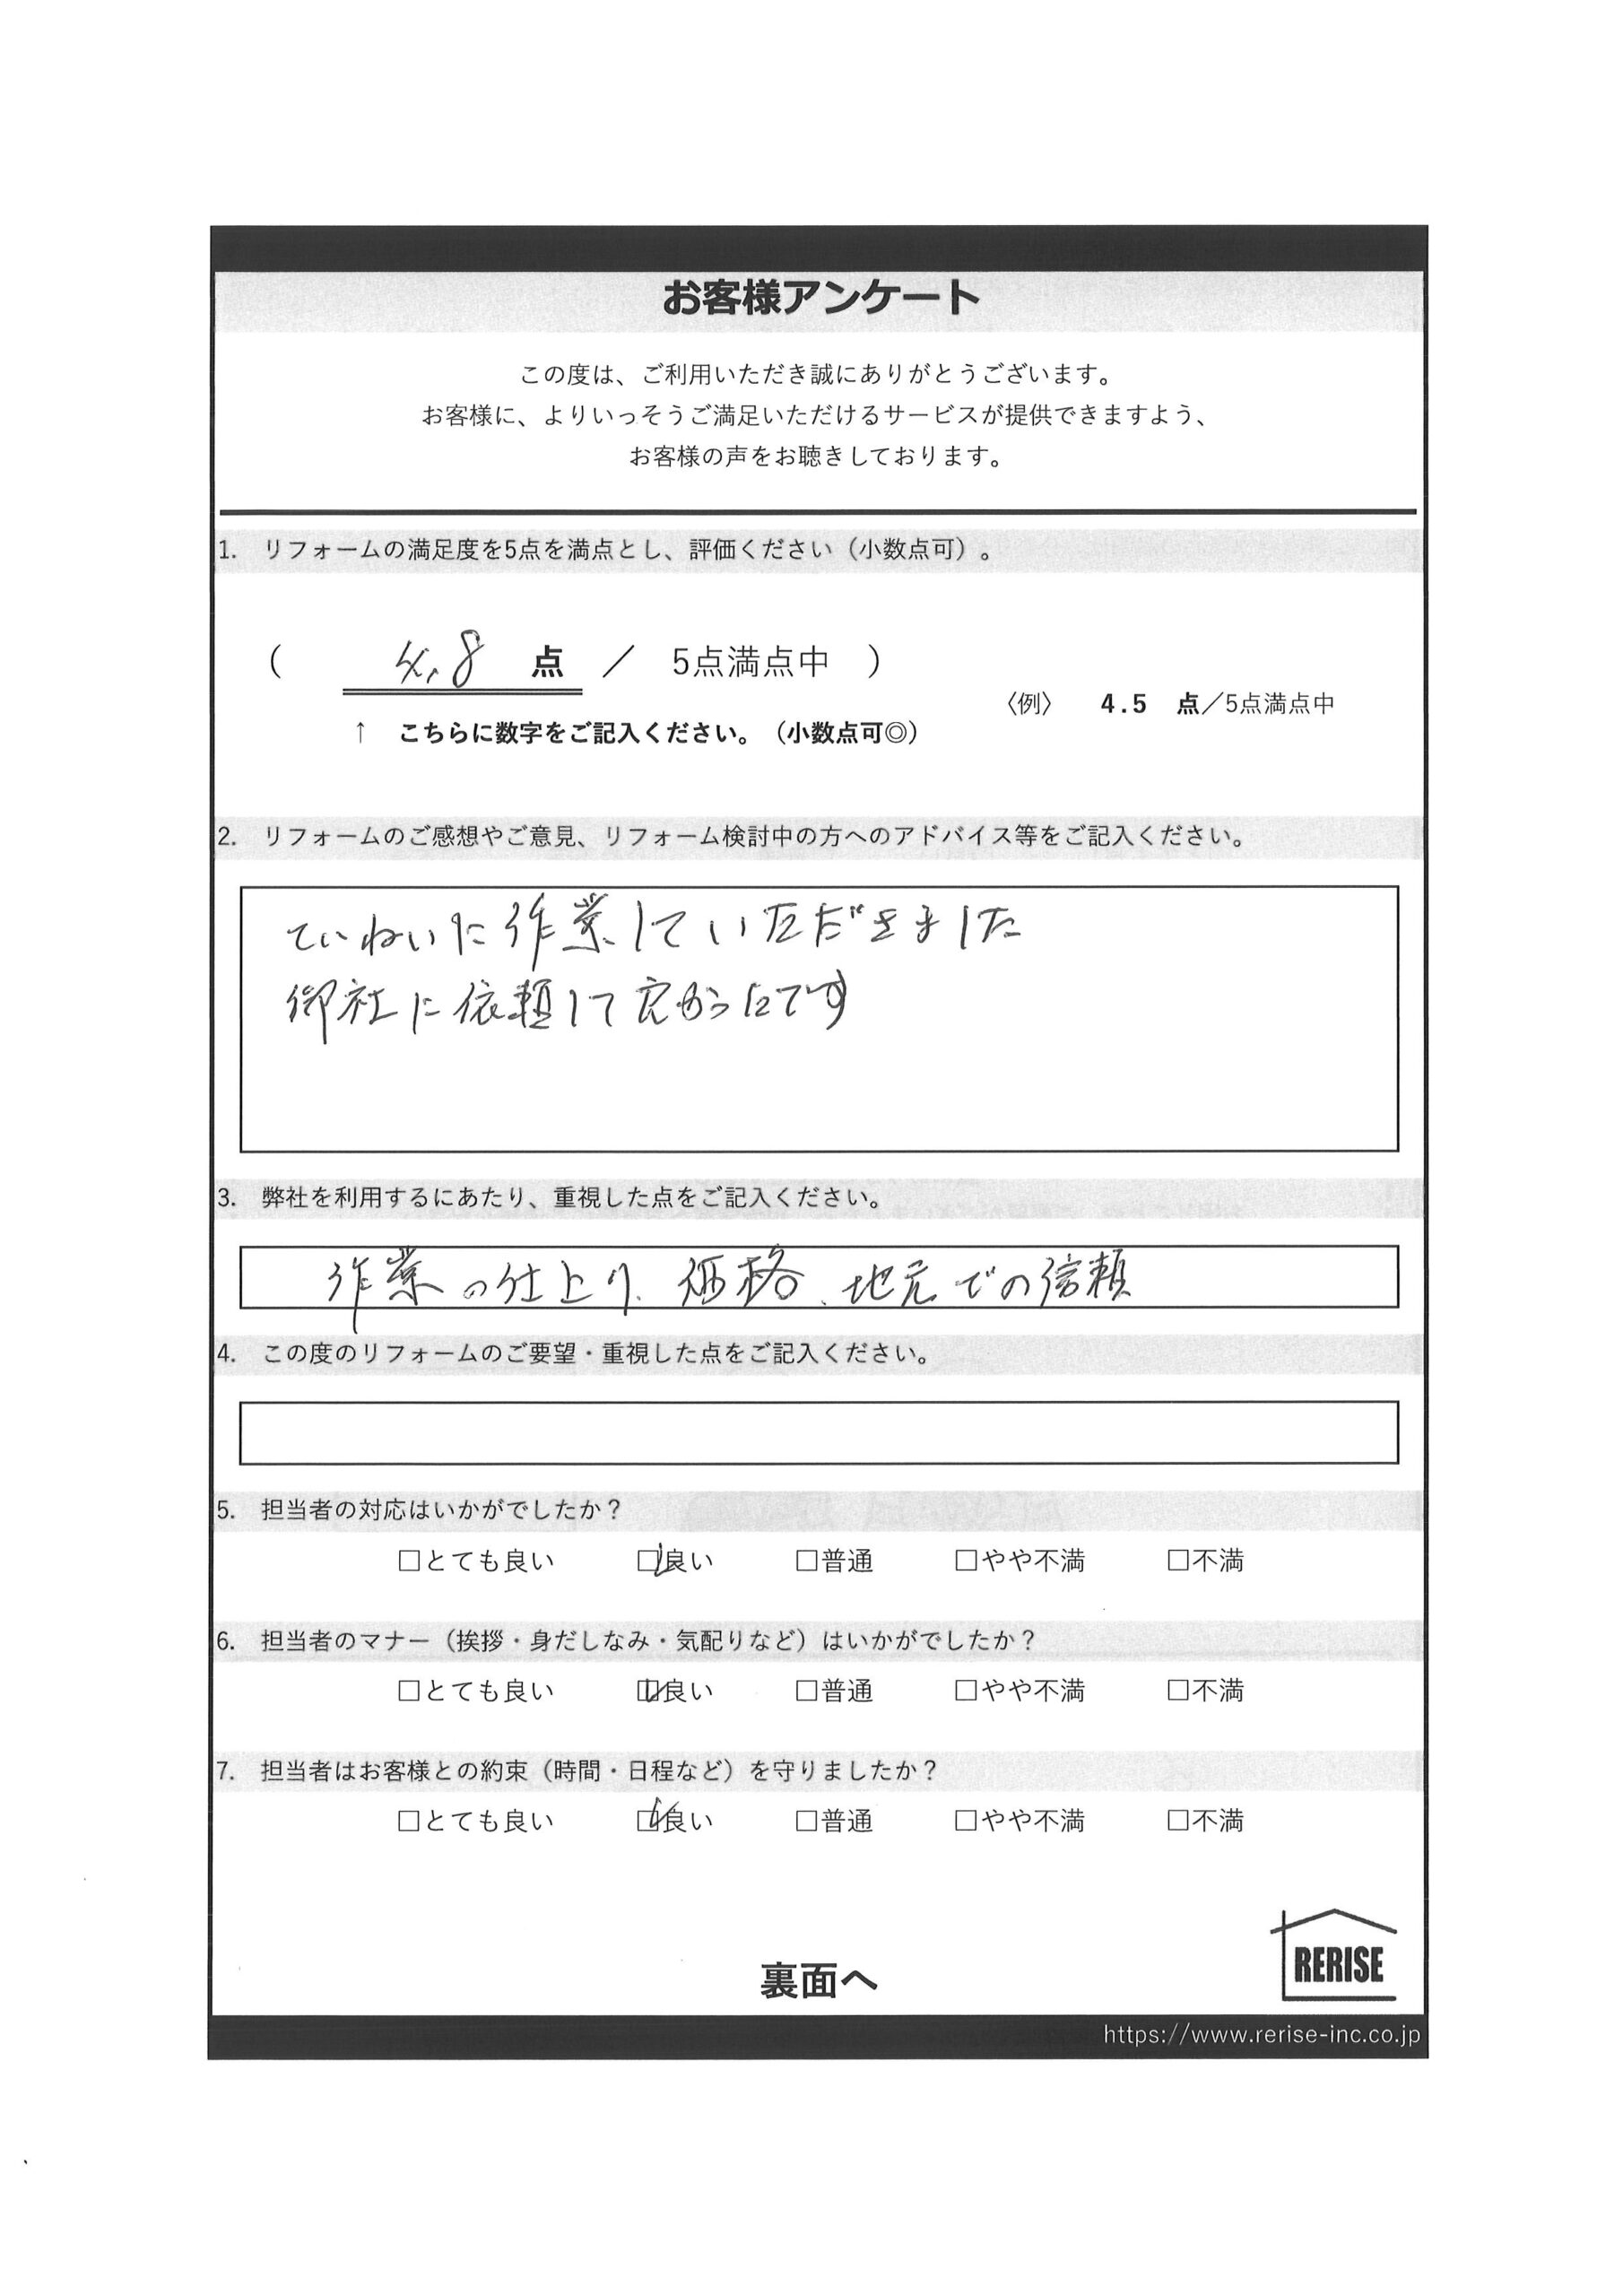 お客様アンケート
この度は、ご利用いただき誠にありがとうございます。
お客様に、よりいっそうご満足いただけるサービスが提供できますよう、
お客様の声をお聴きしております。
1. リフォームの満足度を5点を満点とし、評価ください（小数点可）。
( 4.8 点 ／ 5点満点中 )
〈例〉 4.5 点／5点満点中
↑ こちらに数字をご記入ください。（小数点可◎）
2. リフォームのご感想やご意見、リフォーム検討中の方へのアドバイス等をご記入ください。
ていねいに作業していただきました
御社に依頼して良かったです
3. 弊社を利用するにあたり、重視した点をご記入ください。
作業の仕上り、価格、地元での信頼
4. この度のリフォームのご要望・重視した点をご記入ください。
5. 担当者の対応はいかがでしたか？
□とても良い ☑良い □普通 □やや不満 □不満
6. 担当者のマナー（挨拶・身だしなみ・気配りなど）はいかがでしたか？
□とても良い ☑良い □普通 □やや不満 □不満
7. 担当者はお客様との約束（時間・日程など）を守りましたか？
□とても良い ☑良い □普通 □やや不満 □不満
裏面へ
RERISE
https://www.rerise-inc.co.jp